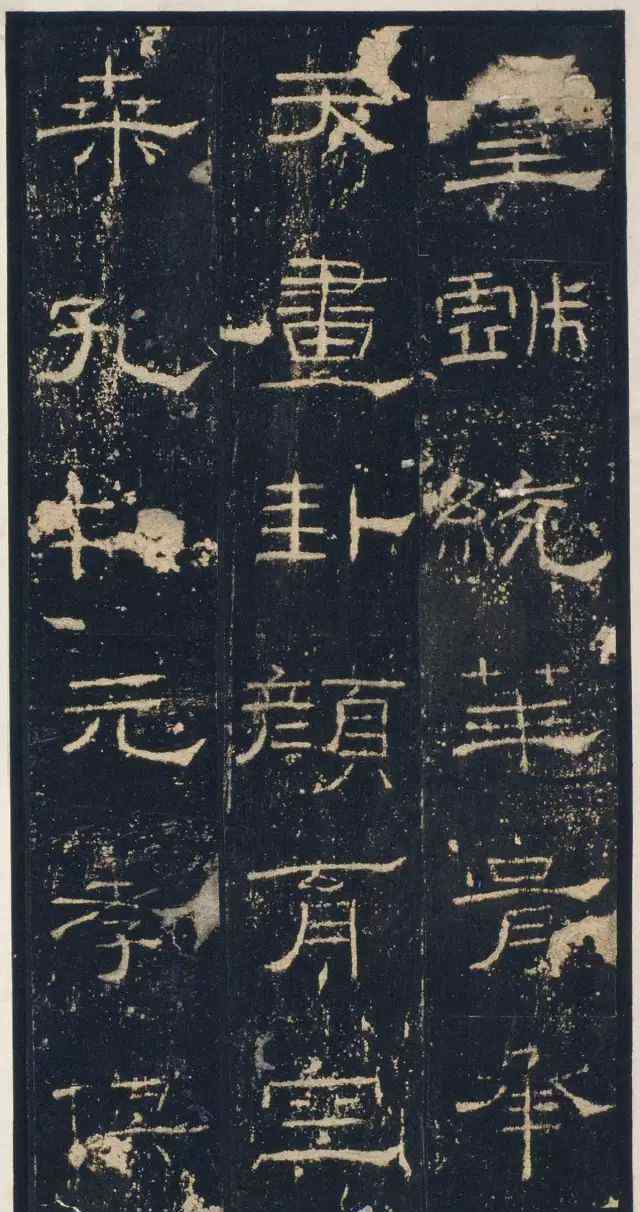 皇戲統華胥承
天畫卦顏育空
桑孔制元孝俱